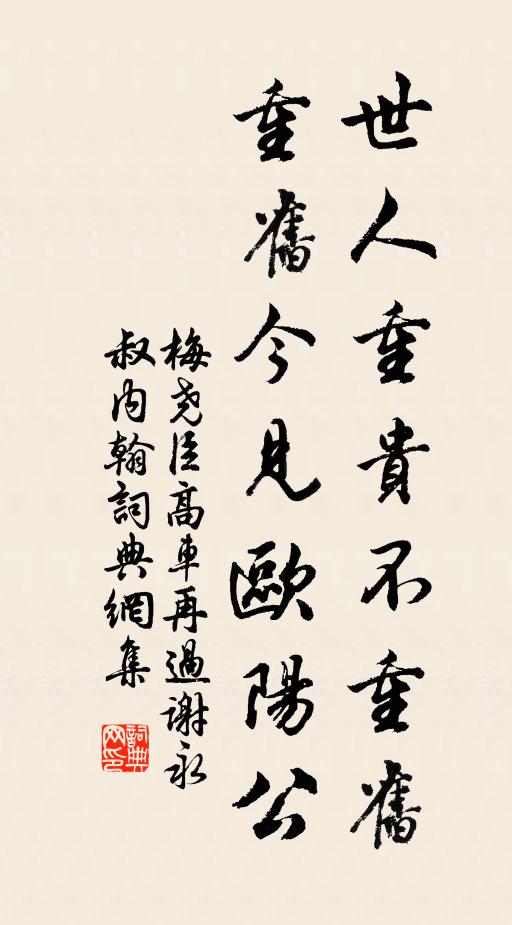 世人重貴不重舊
重舊今見歐陽公
梅尧臣高車再過謝永
叔内翰詞典網集
詞典网印